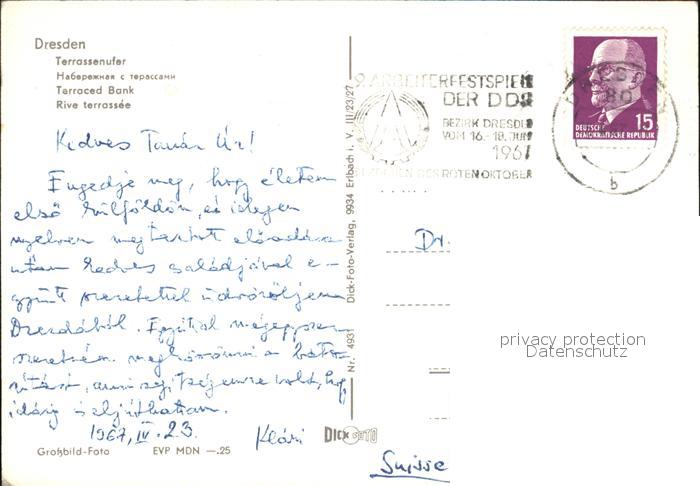 Dresden
Terrassenufer
Набережная с терассами
Tarraced Bank
Rive terrassée
Kedves Tanár Úr!
Engedje meg, hogy életem
első külföldön, és idegen
nyelven megtartott előadása
után kedves családjával e-
gyütt szeretettel üdvözöljem
Drezdából. Egyúttal mégegyszer
szeretném megköszönni a báto-
rítást, ami segítségemre volt, hogy
idáig eljuthattam.
1967. IV. 23.
Klári
Großbild-Foto EVP MDN —.25
Nr. 4931 Dick-Foto-Verlag, 9934 Erlbach i. V. III/23/27
DICK FOTO
9. ARBEITERFESTSPIELE
DER DDR
BEZIRK DRESDEN
VOM 16.-18. JUNI
1967
IM ZEICHEN DES ROTEN OKTOBER
DEUTSCHE
DEMOKRATISCHE REPUBLIK
15
b
Dr.
privacy protection
Datenschutz
Suisse